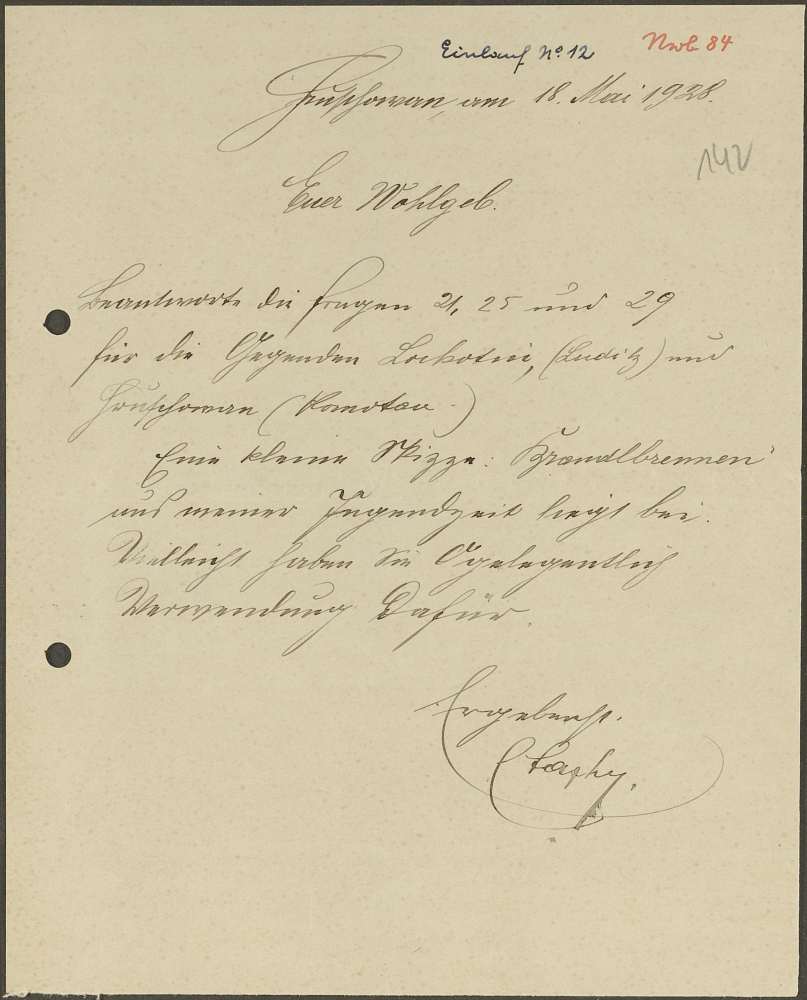 Einlauf № 12
Nwb 84
Hruschowan, am 18. Mai 1928.
142
Euer Wohlgeb.
Beantworte die Fragen 21, 25 und 29
für die Gegenden Lockotin, (Luditz) und
Hruschowan (Komotau.)
Eine kleine Skizze: Brandlbrennen"
aus meiner Jugendzeit liegt bei.
Vielleicht haben Sie gelegentlich
Verwendung dafür.
Ergebenst.